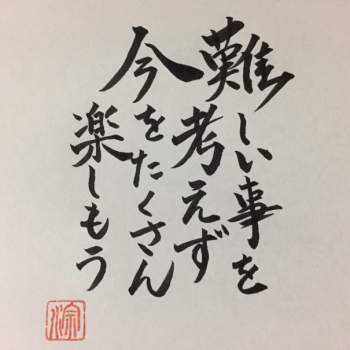 難しい事を
考えず
今をたくさん
楽しもう